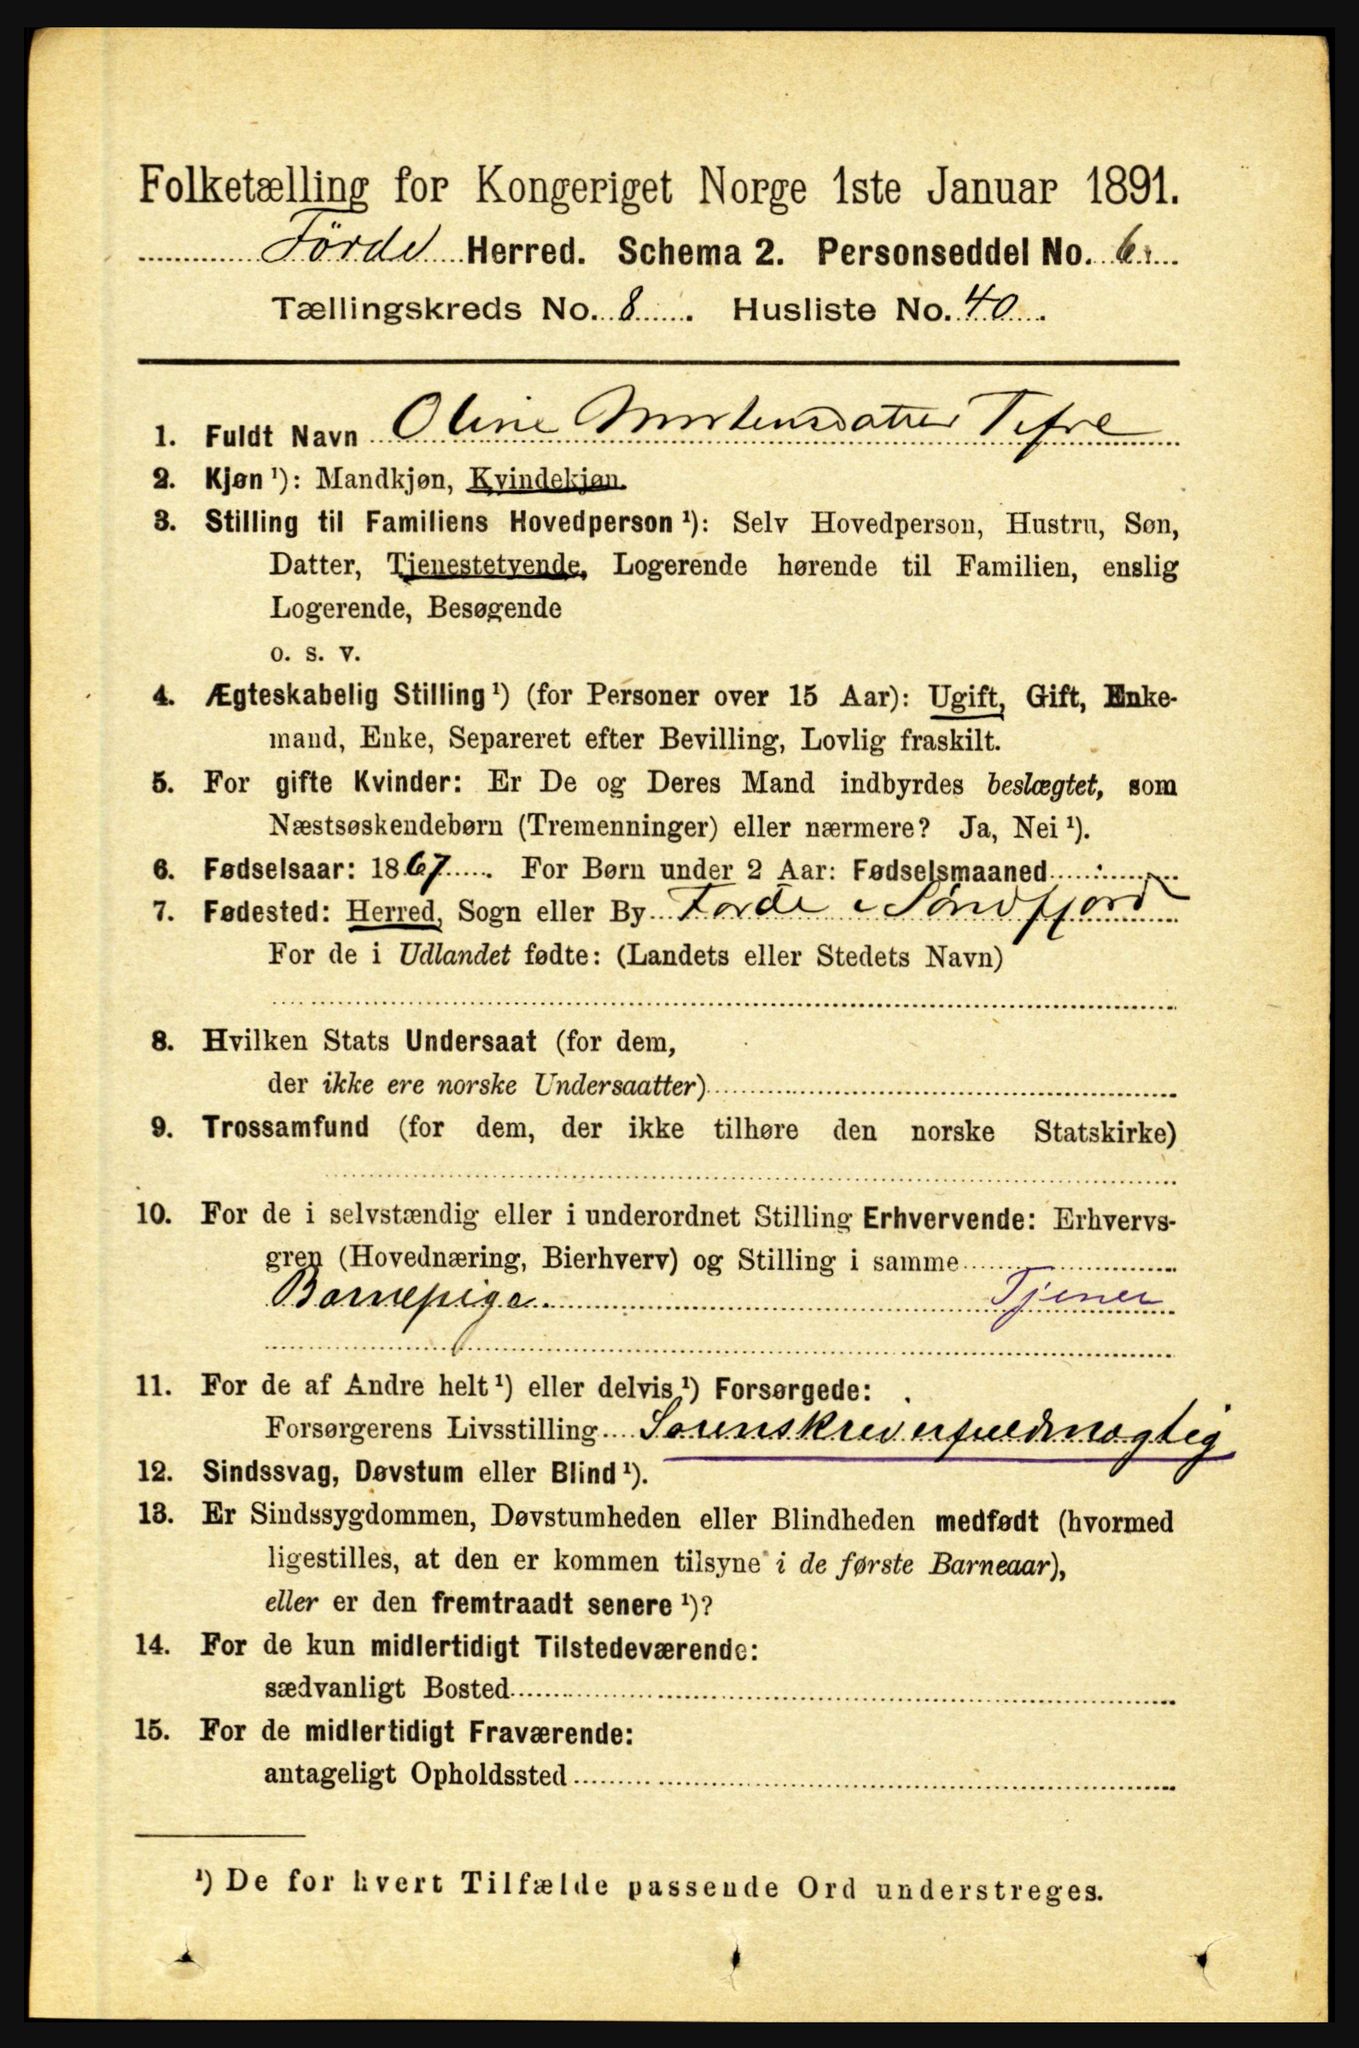 Folketælling for Kongeriget Norge 1ste Januar 1891.
Førde Herred. Schema 2. Personseddel No. 6.
Tællingskreds No. 8. Husliste No. 40.
1. Fuldt Navn Oline Mortensdatter Tefre
2. Kjøn ¹): Mandkjøn, Kvindekjøn.
3. Stilling til Familiens Hovedperson ¹): Selv Hovedperson, Hustru, Søn,
Datter, Tjenestetyende, Logerende hørende til Familien, enslig
Logerende, Besøgende
o. s. v.
4. Ægteskabelig Stilling ¹) (for Personer over 15 Aar): Ugift, Gift, Enke-
mand, Enke, Separeret efter Bevilling, Lovlig fraskilt.
5. For gifte Kvinder: Er De og Deres Mand indbyrdes beslægtet, som
Næstsøskendebørn (Tremenninger) eller nærmere? Ja, Nei ¹).
6. Fødselsaar: 1867. For Børn under 2 Aar: Fødselsmaaned
7. Fødested: Herred, Sogn eller By Førde i Søndfjord
For de i Udlandet fødte: (Landets eller Stedets Navn)
8. Hvilken Stats Undersaat (for dem,
der ikke ere norske Undersaatter)
9. Trossamfund (for dem, der ikke tilhøre den norske Statskirke)
10. For de i selvstændig eller i underordnet Stilling Erhvervende: Erhvervs-
gren (Hovednæring, Bierhverv) og Stilling i samme
Barnepige Tjener
11. For de af Andre helt ¹) eller delvis ¹) Forsørgede:
Forsørgerens Livsstilling Sorenskriverfuldmægtig
12. Sindssvag, Døvstum eller Blind ¹).
13. Er Sindssygdommen, Døvstumheden eller Blindheden medfødt (hvormed
ligestilles, at den er kommen tilsyne i de første Barneaar),
eller er den fremtraadt senere ¹)?
14. For de kun midlertidigt Tilstedeværende:
sædvanligt Bosted
15. For de midlertidigt Fraværende:
antageligt Opholdssted
¹) De for hvert Tilfælde passende Ord understreges.